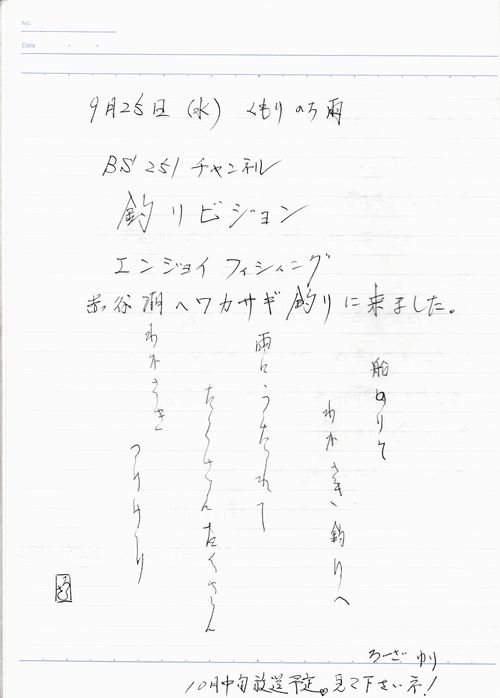 No.
Date
9月25日(水) くもりのち雨
BS 251 チャンネル
釣りビジョン
エンジョイ フィシィング
赤谷湖へワカサギ釣りに来ました。
船のりて
わかさぎ釣りへ
雨にうたれて
たくさん たくさん
わかさぎ
つりけり
ろーざ ゆり
10月中旬放送予定。見て下さいネ!